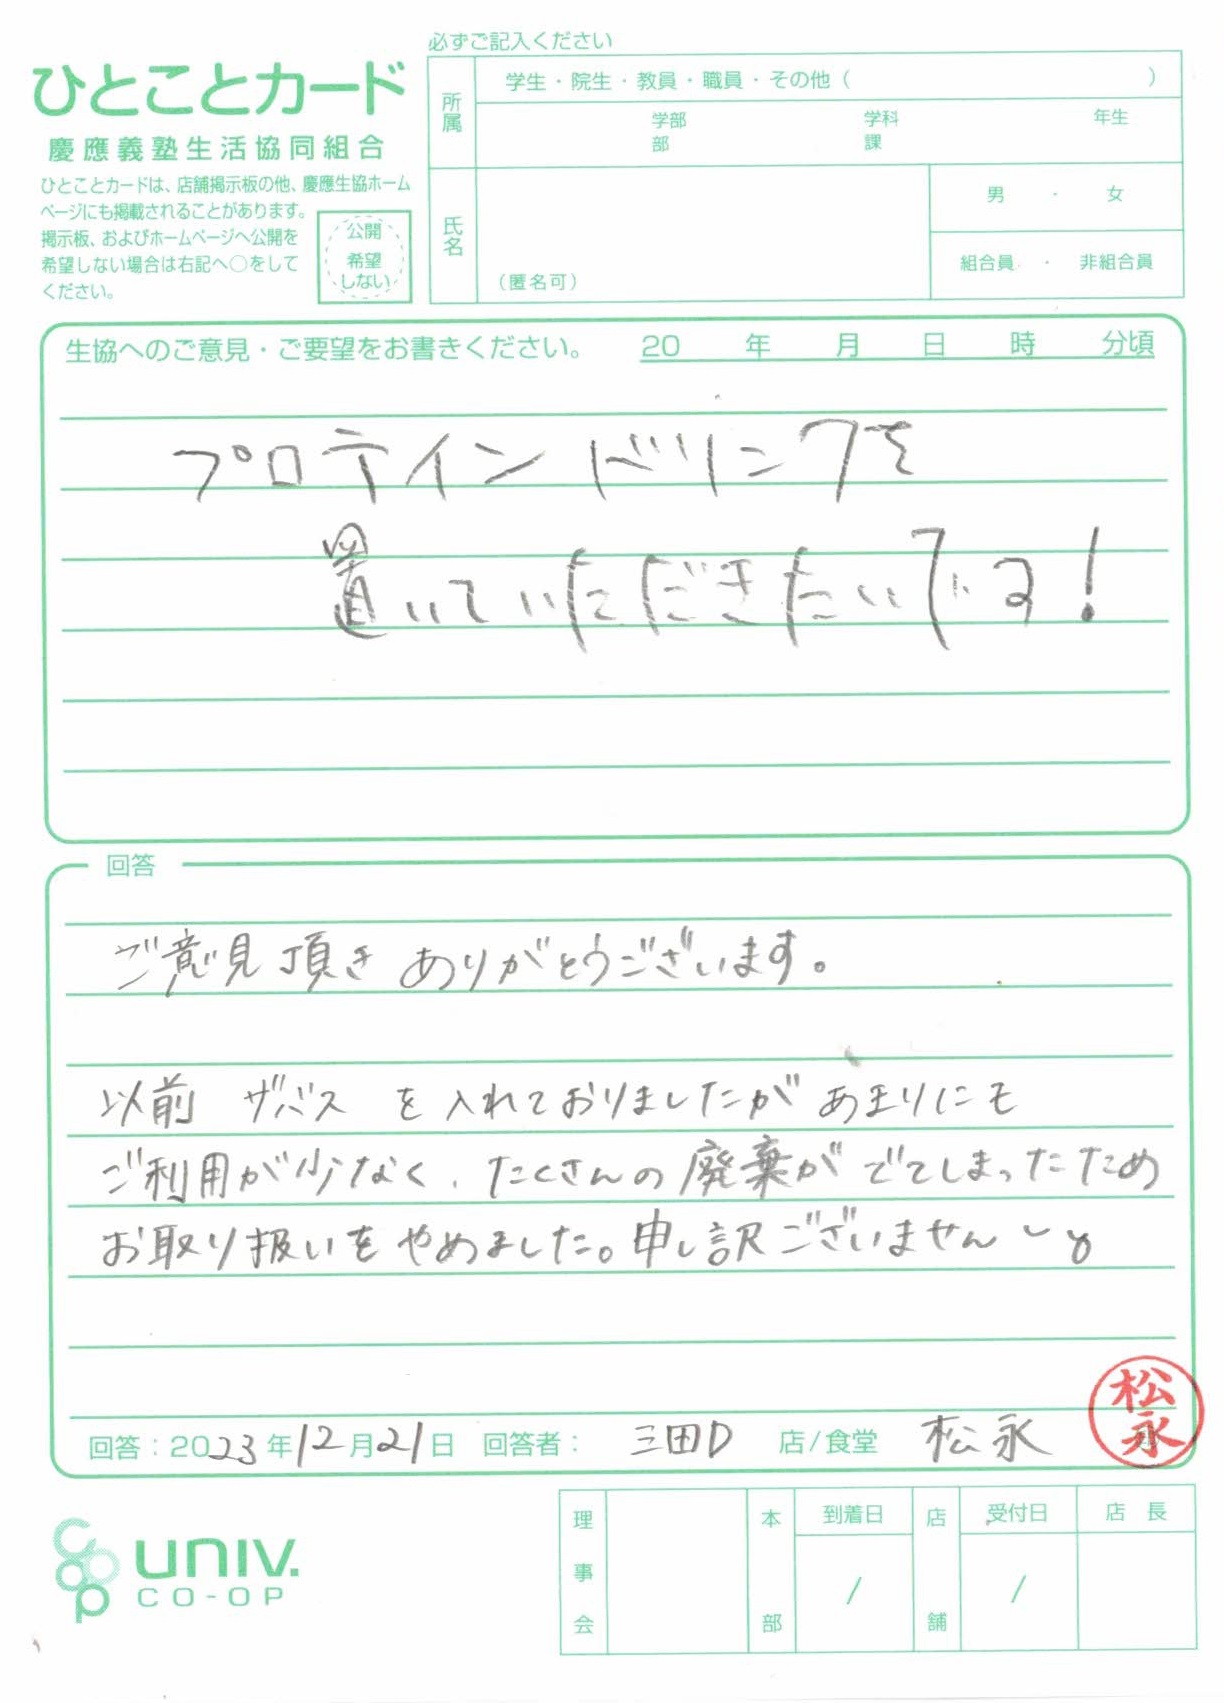 必ずご記入ください
ひとことカード
慶應義塾生活協同組合
ひとことカードは、店舗掲示板の他、慶應生協ホーム
ページにも掲載されることがあります。
掲示板、およびホームページへ公開を
希望しない場合は右記へ○をして
ください。
公開
希望
しない
所属
学生・院生・教員・職員・その他（　　）
学部 学科 年生
部 課
氏名
（匿名可）
男・女
組合員・非組合員
生協へのご意見・ご要望をお書きください。 20 年 月 日 時 分頃
プロテインドリンクを
置いていただきたいです!
回答
ご意見頂きありがとうございます。
以前 ザバス を入れておりましたがあまりにも
ご利用が少なく、たくさんの廃棄がでてしまったため
お取り扱いをやめました。申し訳ございません
回答：2023年12月21日 回答者： 三田D 店/食堂 松永
松永
coop univ.
CO-OP
理事会
本部
到着日
/
店舗
受付日
/
店長